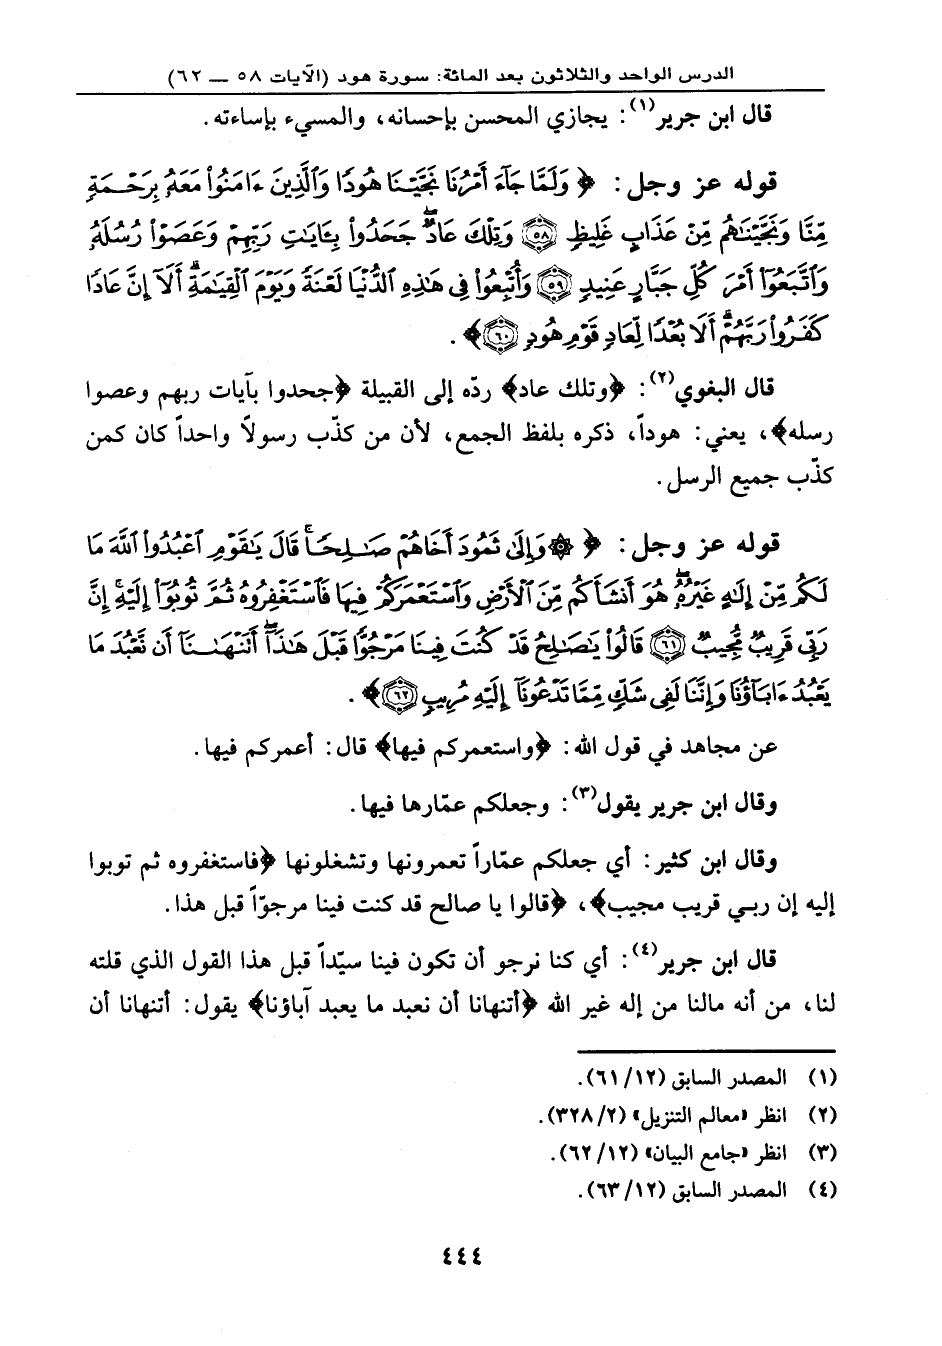 الدرس الواحد والثلاثون بعد المائة: سورة هود (الآيات ٥٨ ـ ٦٢)
قال ابن جرير(١): يجازي المحسن بإحسانه، والمسيء بإساءته.
قوله عز وجل: ﴿ وَلَمَّا جَآءَ أَمْرُنَا نَجَّيْنَا هُودًا وَٱلَّذِينَ ءَامَنُوا۟ مَعَهُۥ بِرَحْمَةٍ
مِّنَّا وَنَجَّيْنَٰهُم مِّنْ عَذَابٍ غَلِيظٍ ٥٨ وَتِلْكَ عَادٌ ۖ جَحَدُوا۟ بِـَٔايَٰتِ رَبِّهِمْ وَعَصَوْا۟ رُسُلَهُۥ
وَٱتَّبَعُوٓا۟ أَمْرَ كُلِّ جَبَّارٍ عَنِيدٍ ٥٩ وَأُتْبِعُوا۟ فِى هَٰذِهِ ٱلدُّنْيَا لَعْنَةً وَيَوْمَ ٱلْقِيَٰمَةِ ۗ أَلَآ إِنَّ عَادًا
كَفَرُوا۟ رَبَّهُمْ ۗ أَلَا بُعْدًا لِّعَادٍ قَوْمِ هُودٍ ٦٠ ﴾.
قال البغوي(٢): ﴿وتلك عاد﴾ ردّه إلى القبيلة ﴿جحدوا بآيات ربهم وعصوا
رسله﴾، يعني: هوداً، ذكره بلفظ الجمع، لأن من كذّب رسولاً واحداً كان كمن
كذّب جميع الرسل.
قوله عز وجل: ﴿ ۞ وَإِلَىٰ ثَمُودَ أَخَاهُمْ صَٰلِحًا ۚ قَالَ يَٰقَوْمِ ٱعْبُدُوا۟ ٱللَّهَ مَا
لَكُم مِّنْ إِلَٰهٍ غَيْرُهُۥ ۖ هُوَ أَنشَأَكُم مِّنَ ٱلْأَرْضِ وَٱسْتَعْمَرَكُمْ فِيهَا فَٱسْتَغْفِرُوهُ ثُمَّ تُوبُوٓا۟ إِلَيْهِ ۚ إِنَّ
رَبِّى قَرِيبٌ مُّجِيبٌ ٦١ قَالُوا۟ يَٰصَٰلِحُ قَدْ كُنتَ فِينَا مَرْجُوًّا قَبْلَ هَٰذَآ ۖ أَتَنْهَىٰنَآ أَن نَّعْبُدَ مَا
يَعْبُدُ ءَابَآؤُنَا وَإِنَّنَا لَفِى شَكٍّ مِّمَّا تَدْعُونَآ إِلَيْهِ مُرِيبٍ ٦٢ ﴾.
عن مجاهد في قول الله: ﴿واستعمركم فيها﴾ قال: أعمركم فيها.
وقال ابن جرير يقول(٣): وجعلكم عمّارها فيها.
وقال ابن كثير: أي جعلكم عمّاراً تعمرونها وتشغلونها ﴿فاستغفروه ثم توبوا
إليه إن ربي قريب مجيب﴾، ﴿قالوا يا صالح قد كنت فينا مرجوّاً قبل هذا.
قال ابن جرير(٤): أي كنا نرجو أن تكون فينا سيّداً قبل هذا القول الذي قلته
لنا، من أنه مالنا من إله غير الله ﴿أتنهانا أن نعبد ما يعبد آباؤنا﴾ يقول: أتنهانا أن
(١) المصدر السابق (٦١/١٢).
(٢) انظر «معالم التنزيل» (٣٢٨/٢).
(٣) انظر «جامع البيان» (٦٢/١٢).
(٤) المصدر السابق (٦٣/١٢).
٤٤٤